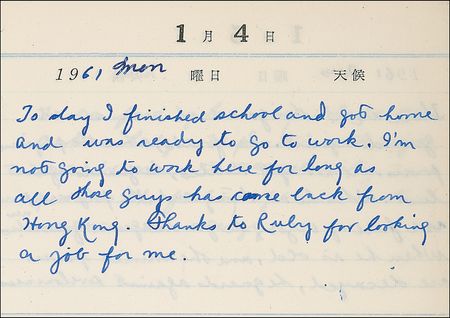 1月4日
1961 Mon 曜日 天候
To day I finished school and got home
and was ready to go to work. I'm
not going to work here for long as
all those guys has come back from
Hong Kong. Thanks to Ruby for looking
a job for me.